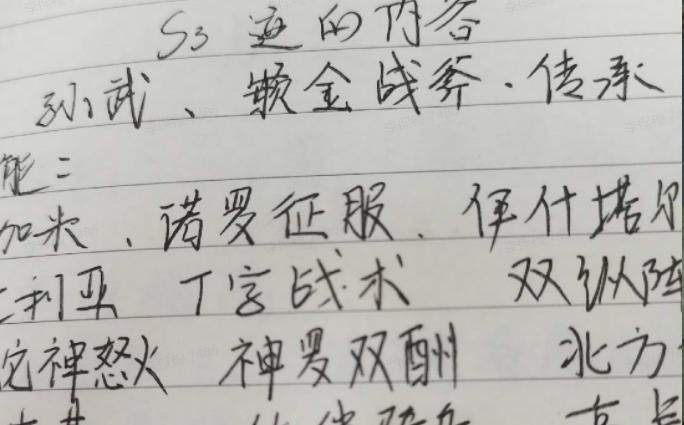 S3 的内容
孙武、赖金战斧.传承
能:
加米、诺罗征服、伊什塔尔
利亚 丁字战术 双纵阵
神怒火 神罗双酬 北方